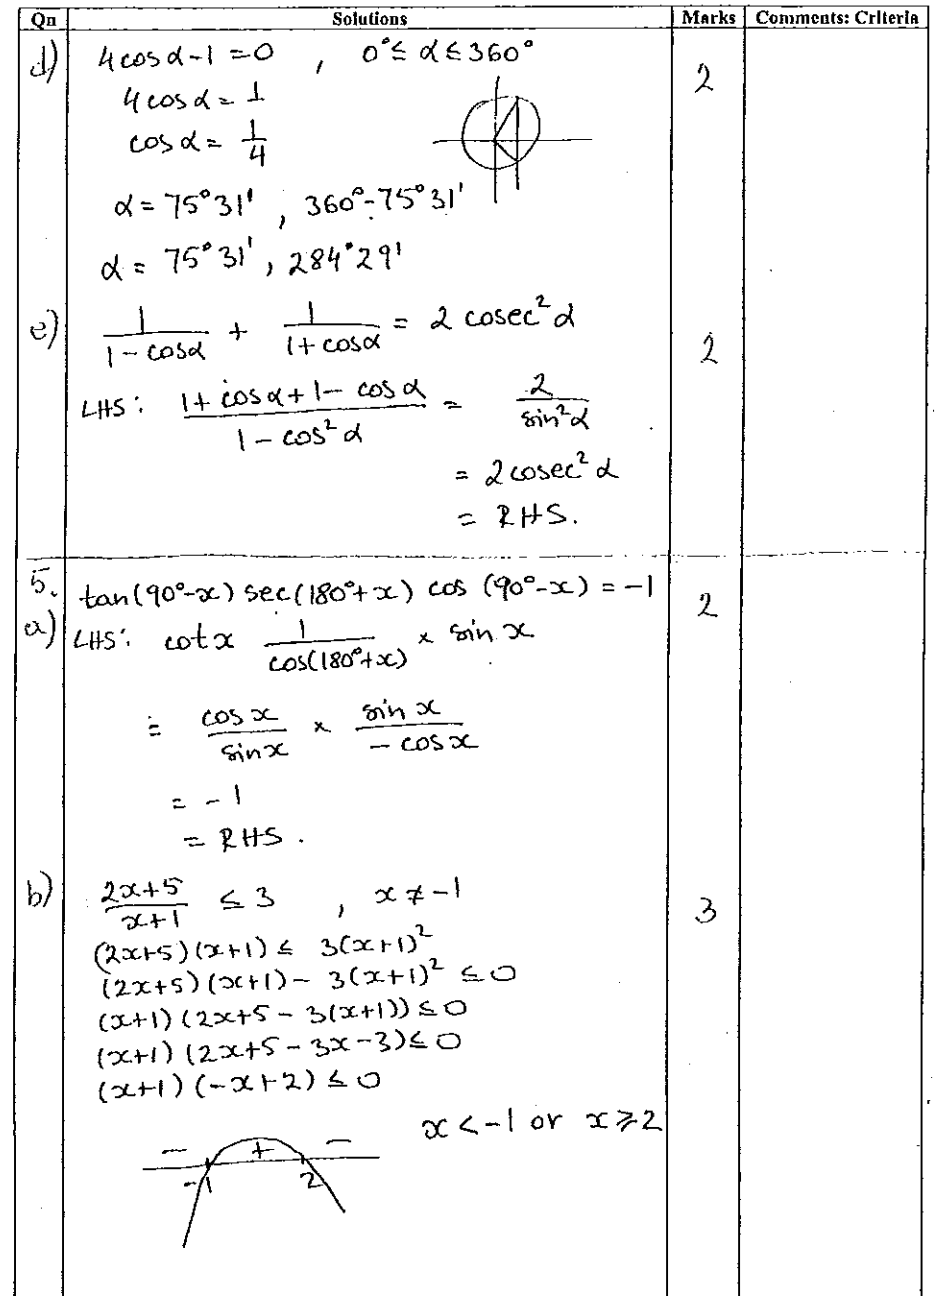 Qn Solutions Marks Comments: Criteria
d) 4cosα-1 = 0 , 0° ≤ α ≤ 360° 2
4cosα = 1
cosα = 1/4
α = 75°31' , 360°-75°31'
α = 75°31' , 284°29'
e) 1/(1-cosα) + 1/(1+cosα) = 2 cosec²α 2
LHS: (1+cosα+1-cosα)/(1-cos²α) = 2/sin²α
= 2cosec²α
= RHS.
5. tan(90°-x) sec(180°+x) cos(90°-x) = -1 2
a) LHS: cotx 1/cos(180°+x) × sin x
= cos x/sin x × sin x/-cos x
= -1
= RHS.
b) (2x+5)/(x+1) ≤ 3 , x ≠ -1 3
(2x+5)(x+1) ≤ 3(x+1)²
(2x+5)(x+1) - 3(x+1)² ≤ 0
(x+1)(2x+5-3(x+1)) ≤ 0
(x+1)(2x+5-3x-3) ≤ 0
(x+1)(-x+2) ≤ 0
x < -1 or x ≥ 2
- + -
-1 2